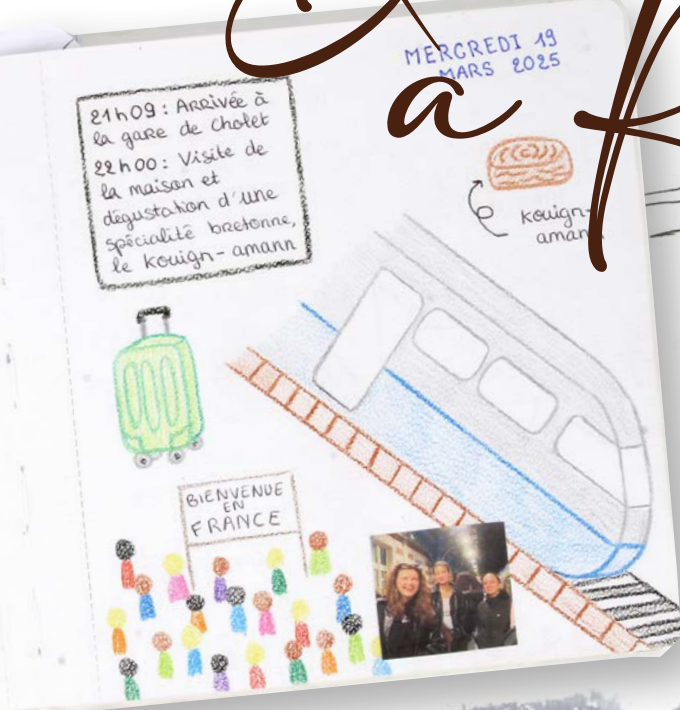 a
MERCREDI 19
MARS 2025
21h09 : Arrivée à
la gare de Cholet
22h00 : Visite de
la maison et
dégustation d'une
spécialité bretonne,
le kouign-amann
kouign-
amann
BIENVENUE
EN
FRANCE